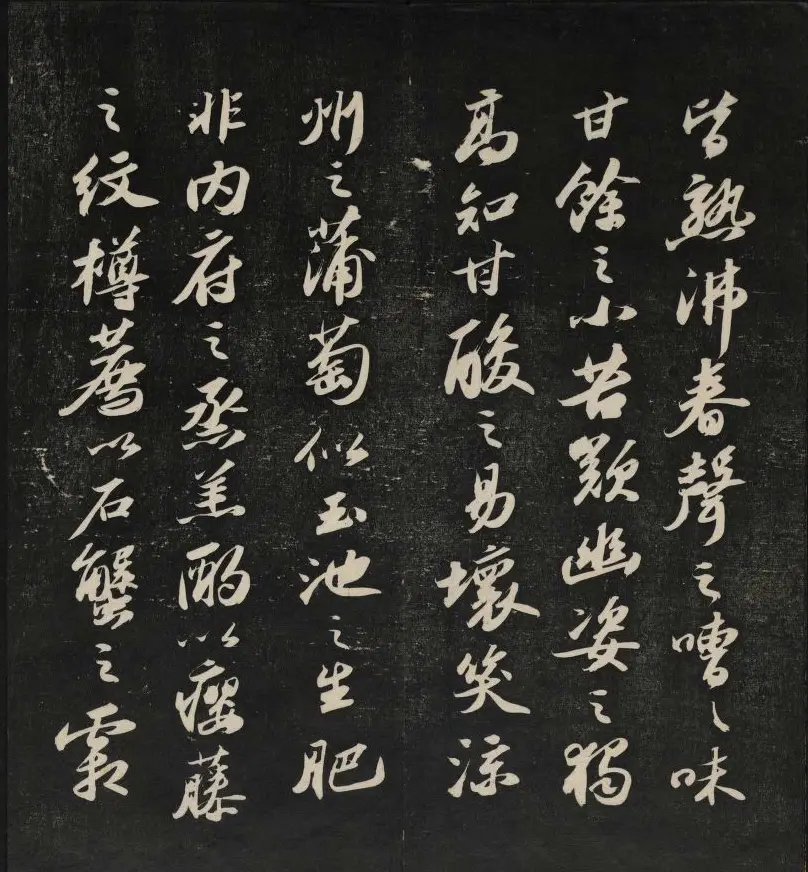 皆熟沸春聲之嘈〻味
甘餘之小苦歎幽姿之獨
高知甘酸之易壞笑涼
州之蒲萄似玉池之生肥
非内府之烝羔酌以癭藤
之紋樽薦以石蟹之霜